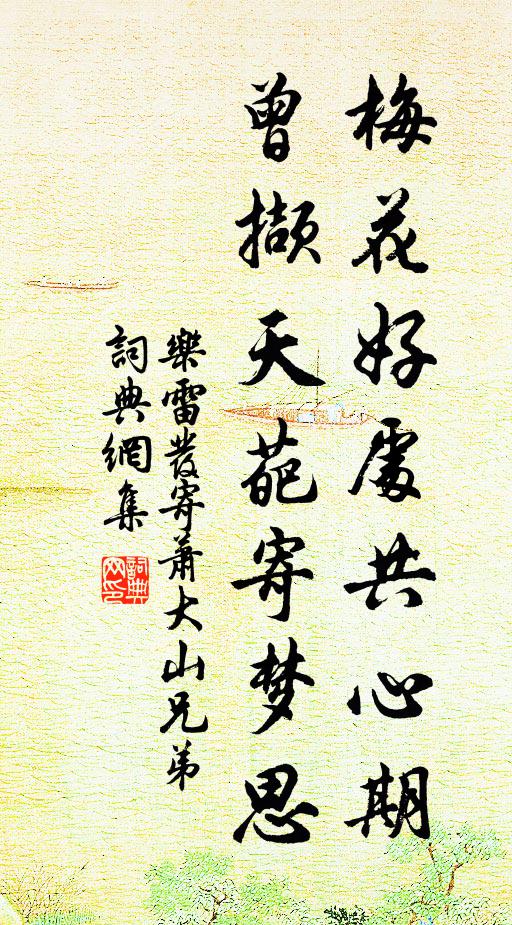 梅花好處共心期
曾擷天葩寄梦思
樂雷發寄蕭大山兄弟
詞典網集
詞典
网印